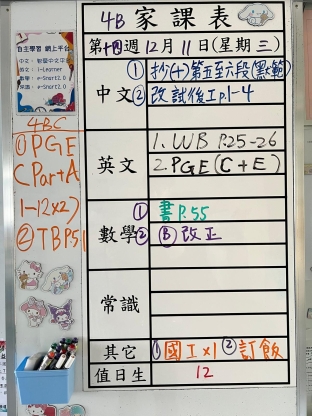 4B 家課表
第十四週12月11日(星期三)
自主學習 網上平台
中文:智愛中文平台
英文:i-Learner
數學:e-Smart2.0
常識:e-Smart2.0
中文
① 抄(十)第五至六段(默範)
② 改試後工p.1-4
英文
1. WB P.25-26
2. PGE (C+E)
數學
① 書P.55
② Ⓑ 改正
常識
其它
① 國工x1 ② 訂飯
值日生
12
4BC
① PGE
C Part A
1-12x2)
② TB P.51